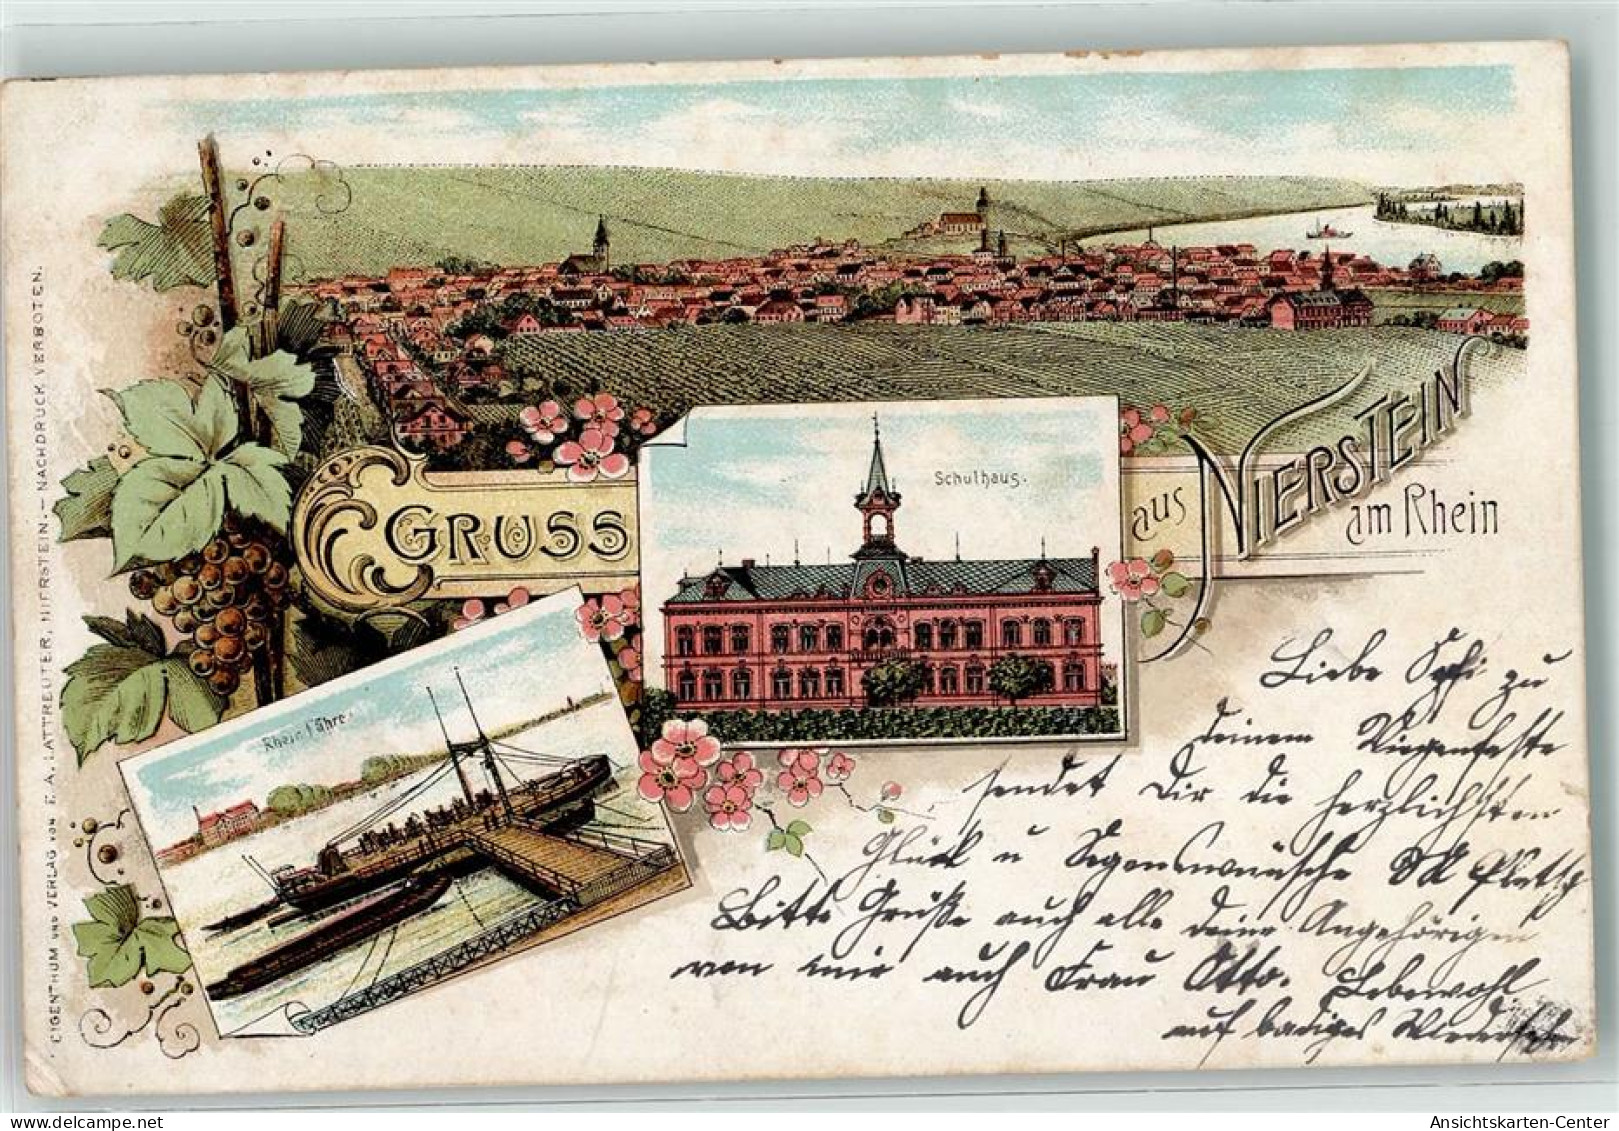 GRUSS aus NIERSTEIN
am Rhein
Schulhaus.
Rheinfähre.
EIGENTHUM UND VERLAG VON F. A. LATTREUTER, NIERSTEIN. — NACHDRUCK VERBOTEN.
Liebe Sofi zu
deinem Wiegenfeste
sendet Dir die herzlichsten
Glück u Segenswünsche
Bitte Grüße auch alle deine Angehörigen
von mir auch Frau Otto. Lebewohl
auf baldiges Wiedersehn
Ansichtskarten-Center